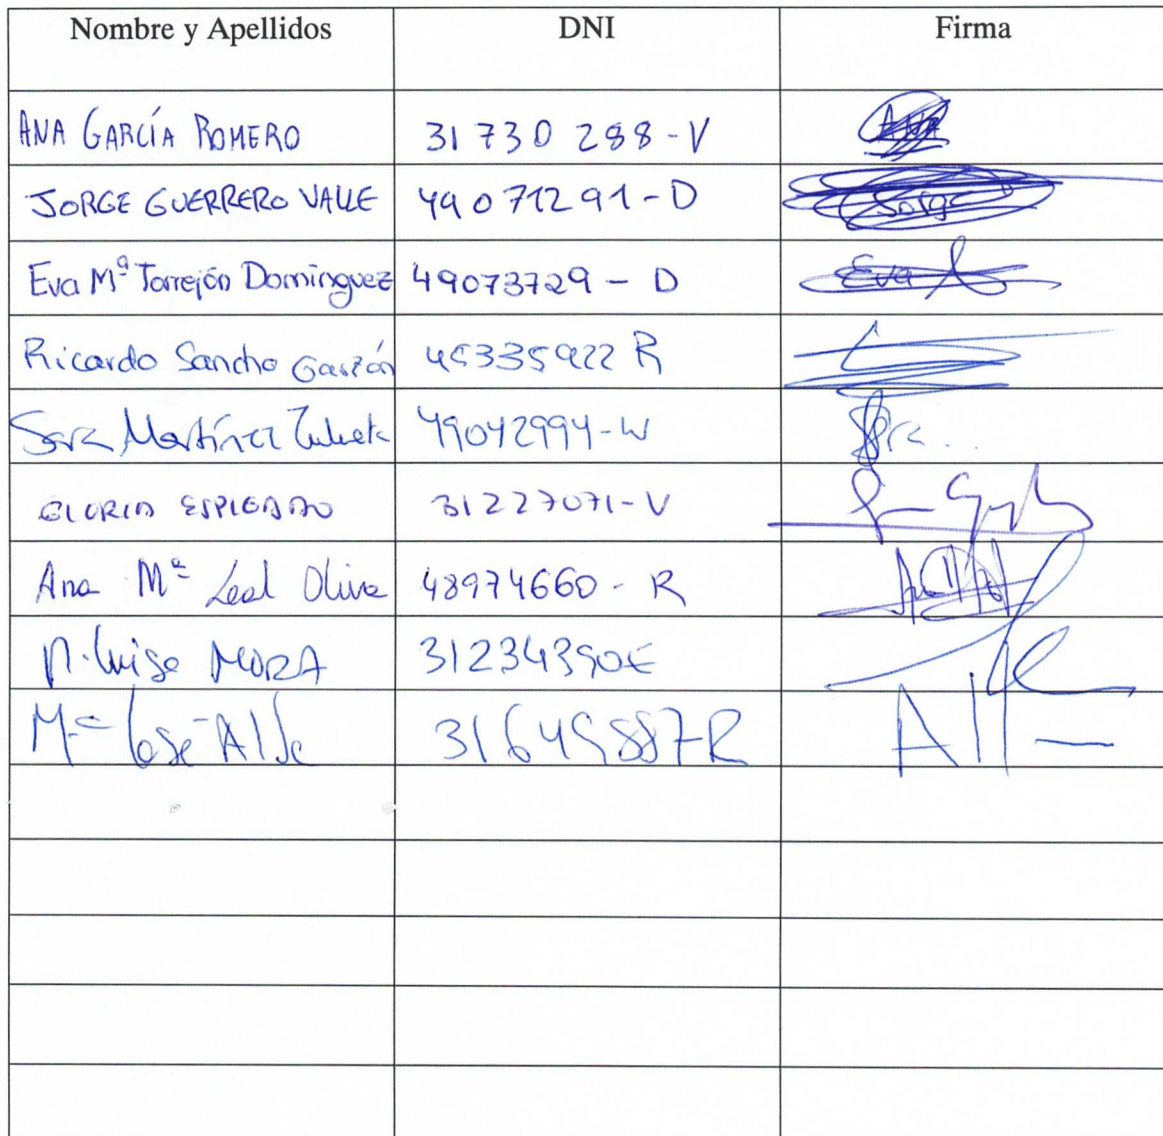 Nombre y Apellidos DNI Firma
ANA GARCÍA ROMERO 31730288-V Ana
JORGE GUERRERO VALLE 49071291-D Jorge
Eva Mª Torrejón Domínguez 49073729-D Eva
Ricardo Sancho Garzón 45335922 R
Sara Martínez 49042994-W Sara
GLORIA ESPIGADO 31227071-V
Ana Mª Leal Oliva 48974660-R
M. Luisa MORA 31234390E
Mª José 31649887R